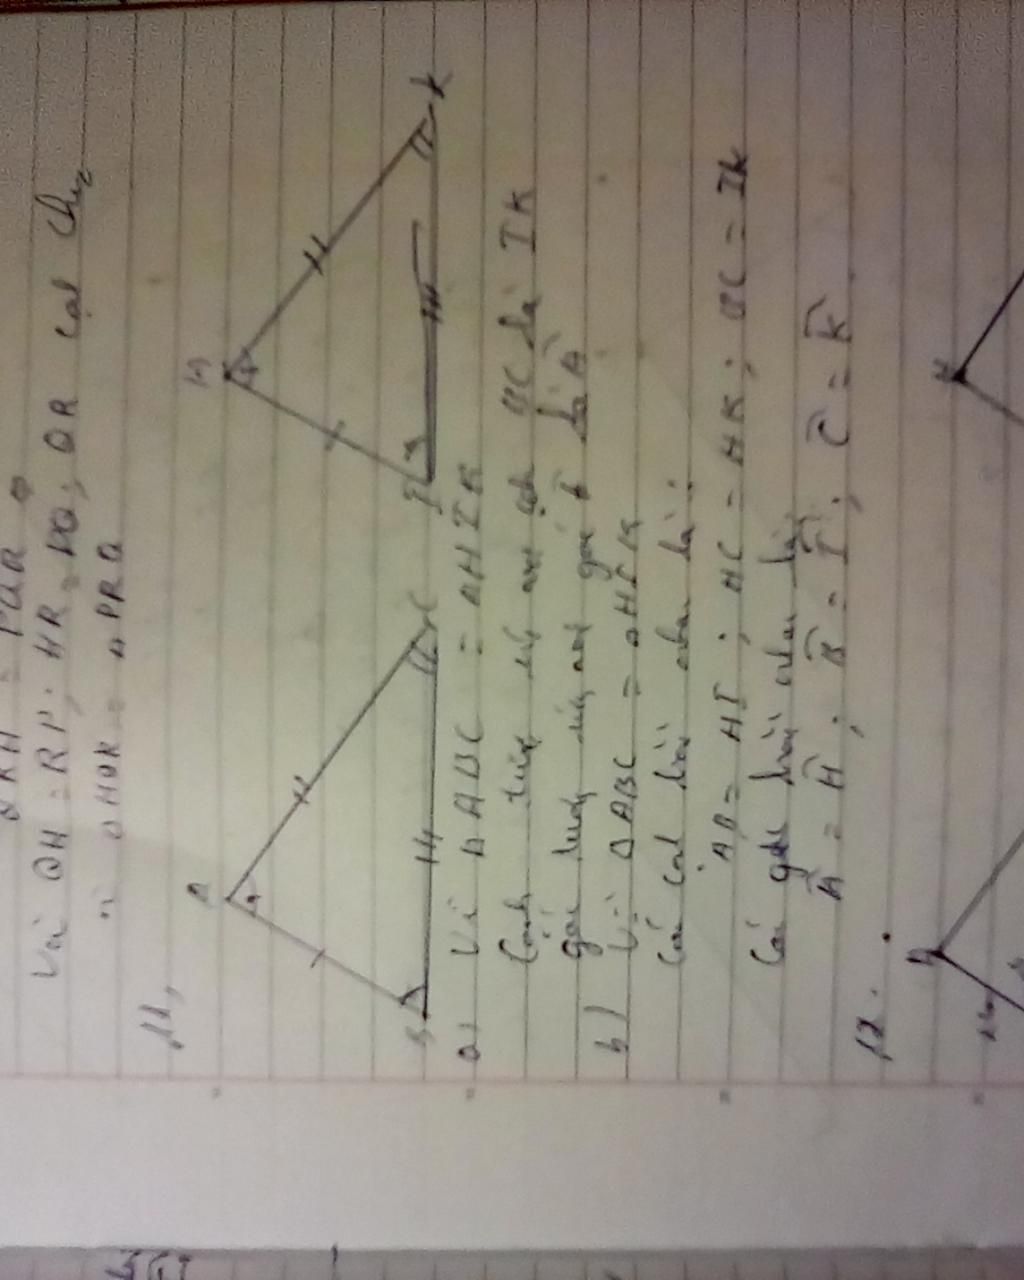 QRH = PQR
Vì QH = RP; HR = DQ; QR cạnh chung
HQR = ∆ PRQ
11,
A
B
C
H
I
K
a) Vì ∆ ABC = ∆HIK
Cạnh tương ứng với cạnh BC là IK
góc tương ứng với góc H là Â
b) Vì ∆ABC = ∆HIK
Các cạnh bằng nhau là:
AB = HI; AC = HK; BC = IK
Các góc bằng nhau là
Â = Ĥ; B̂ = Î; Ĉ = K̂
12.
A
H